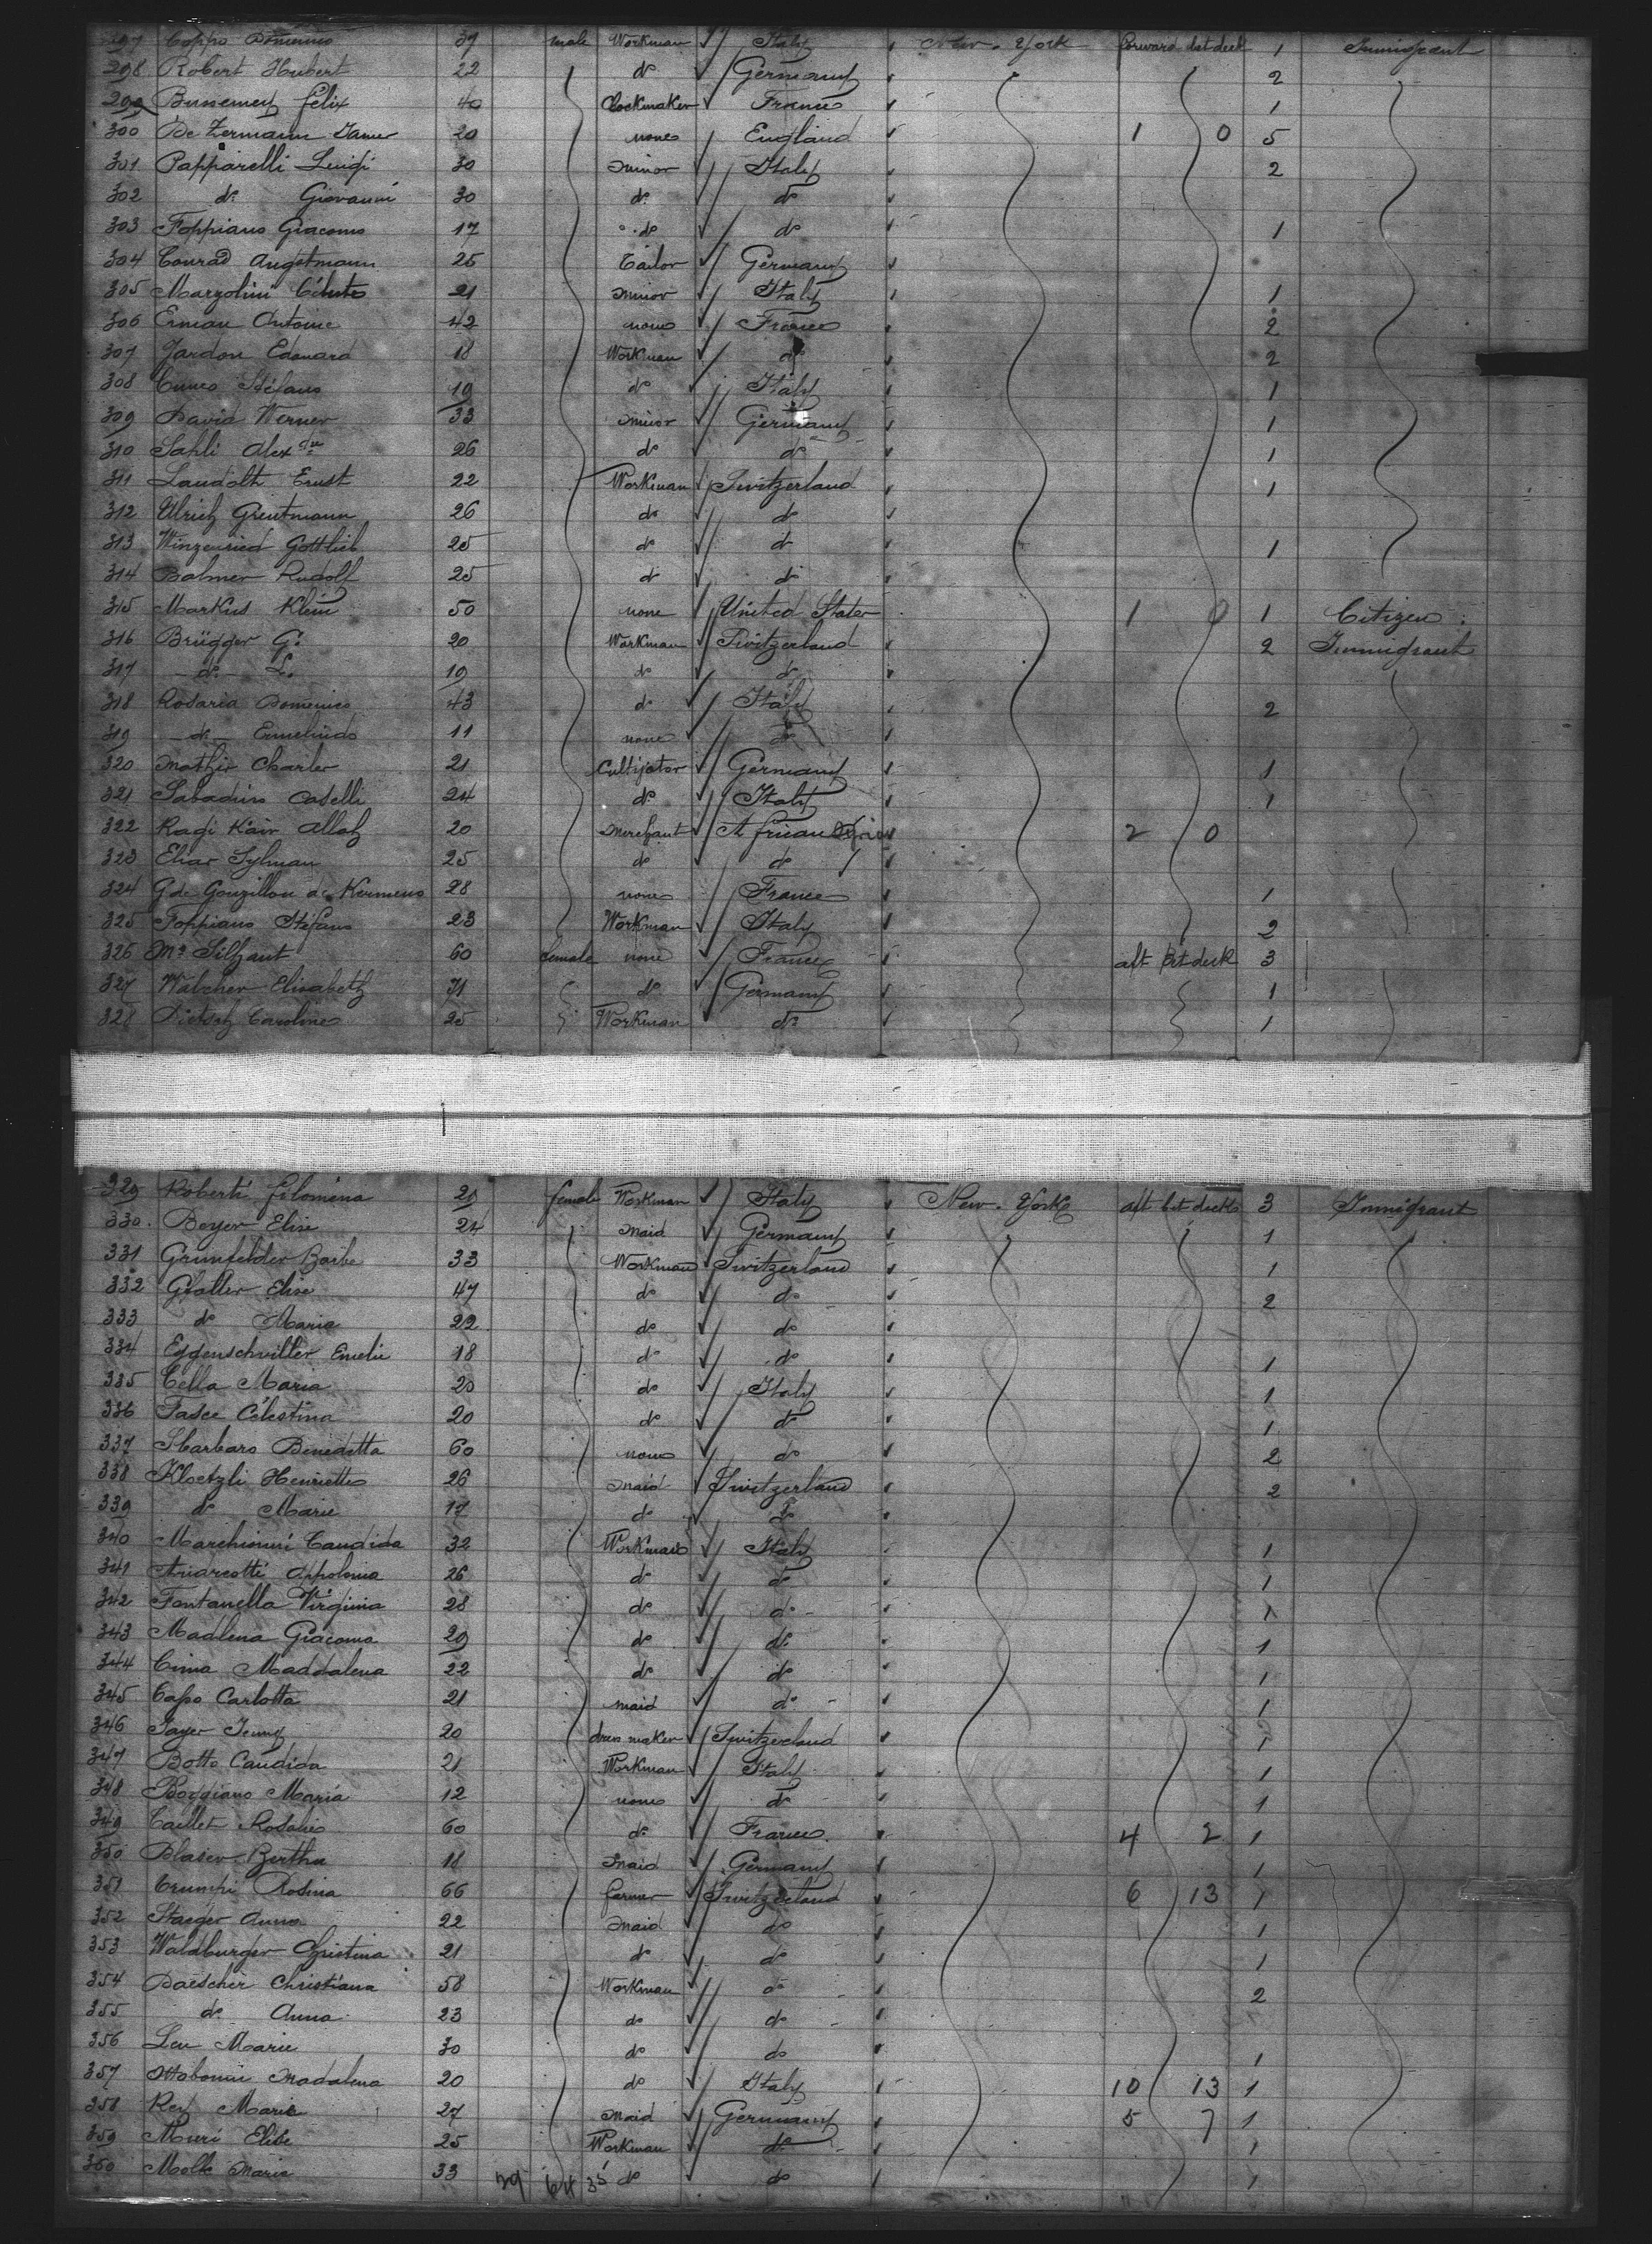 297 Coppo Domenico 37 male Workman Italy New-York forward 1st deck 1 Immigrant
298 Robert Hubert 22 do Germany 2
299 félix 40 Clockmaker France 1
300 De Zermann James 20 none England 1 0 5
301 Papparelli Luigi 30 minor Italy 2
302 do Giovanni 30 do do
303 Foppiano Giacomo 17 do do 1
304 Conrad Angstmann 25 Tailor Germany
305 Marzolini 21 minor Italy 1
306 Erman Antoine 42 none France 2
307 Jardon Edouard 18 Workman do 2
308 Cuneo Stéfano 19 do Italy 1
309 David Werner 33 minor Germany 1
310 Sahli Alexdre 26 do do 1
311 Landolt Ernst 22 Workman Switzerland 1
312 Ulrich Greutmann 26 do do
313 Winzenried Gottlieb 25 do do 1
314 Balmer Rudolf 25 do do
315 Markus Klein 50 none United States 1 0 1 Citizen
316 Brügger G. 20 Workman Switzerland 2 Immigrant
317 - do - L. 19 do do
318 Rosaria Domenico 43 do Italy 2
319 - do - Ermelindo 11 none do
320 Mathir Charles 21 Cultivator Germany 1
321 Sabadino Caselli 24 do Italy 1
322 Ragi Kair Allah 20 Merchant African 2 0
323 Elias Sylman 25 do do
324 G. de Gouzillon de Kermeno 28 none France 1
325 Foppiano Stéfano 23 Workman Italy 2
326 Me Silhant 60 female none France aft 1st deck 3
327 Walcher Elisabeth 71 do Germany 1
328 Dietsch Caroline 25 Workman do 1
329 Roberti filomena 29 female Workman Italy New-York aft 1st deck 3 Immigrant
330 Boyer Elise 24 maid Germany 1
331 Grunfelder Barbe 33 Workman Switzerland 1
332 Gfaller Elise 47 do do 2
333 do Maria 22 do do
334 Eggenschwiller Emelie 18 do do 1
335 Cella Maria 20 do Italy 1
336 Fasce Célestina 20 do do 1
337 Sbarbaro Benedetta 60 none do 2
338 Kloetzli Henriette 26 maid Switzerland 2
339 do Marie 17 do do
340 Marchionni Candida 32 Workman Italy 1
341 Appolonia 26 do do 1
342 Fontanella Virginia 28 do do 1
343 Madlena Giacomo 29 do do 1
344 Cima Maddalena 22 do do 1
345 Capo Carlotta 21 maid do 1
346 Jager Jenny 20 dress maker Switzerland 1
347 Botto Candida 21 Workman Italy 1
348 Boggiano Maria 12 none do 1
349 Caillet Rosalie 60 do France 4 2 1
350 Blaser Bertha 18 maid Germany 1
351 Crumpi Rosina 66 farmer Switzerland 6 13 1
352 Staeger Anna 22 maid do 1
353 Waldburger Christina 21 do do 1
354 Daescher Christiana 58 Workman do 2
355 do Anna 23 do do
356 Leu Marie 30 do do 1
357 Ottobonni Madalena 20 do Italy 10 13 1
358 Rey Marie 27 maid Germany 5 7 1
359 Muri Elise 25 Workman do 1
360 Molle Marie 33 do do 1